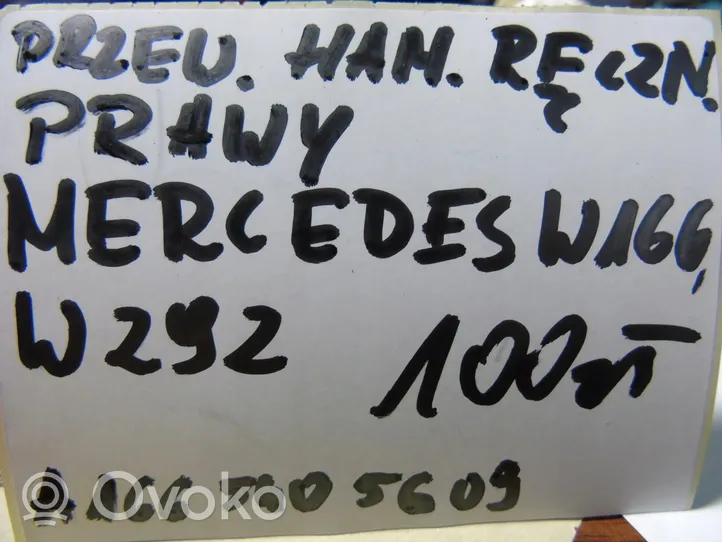 PRZEW. HAM. RĘCZN.
PRAWY
MERCEDES W166,
W292
100zł
A 166 540 5609
Ovoko